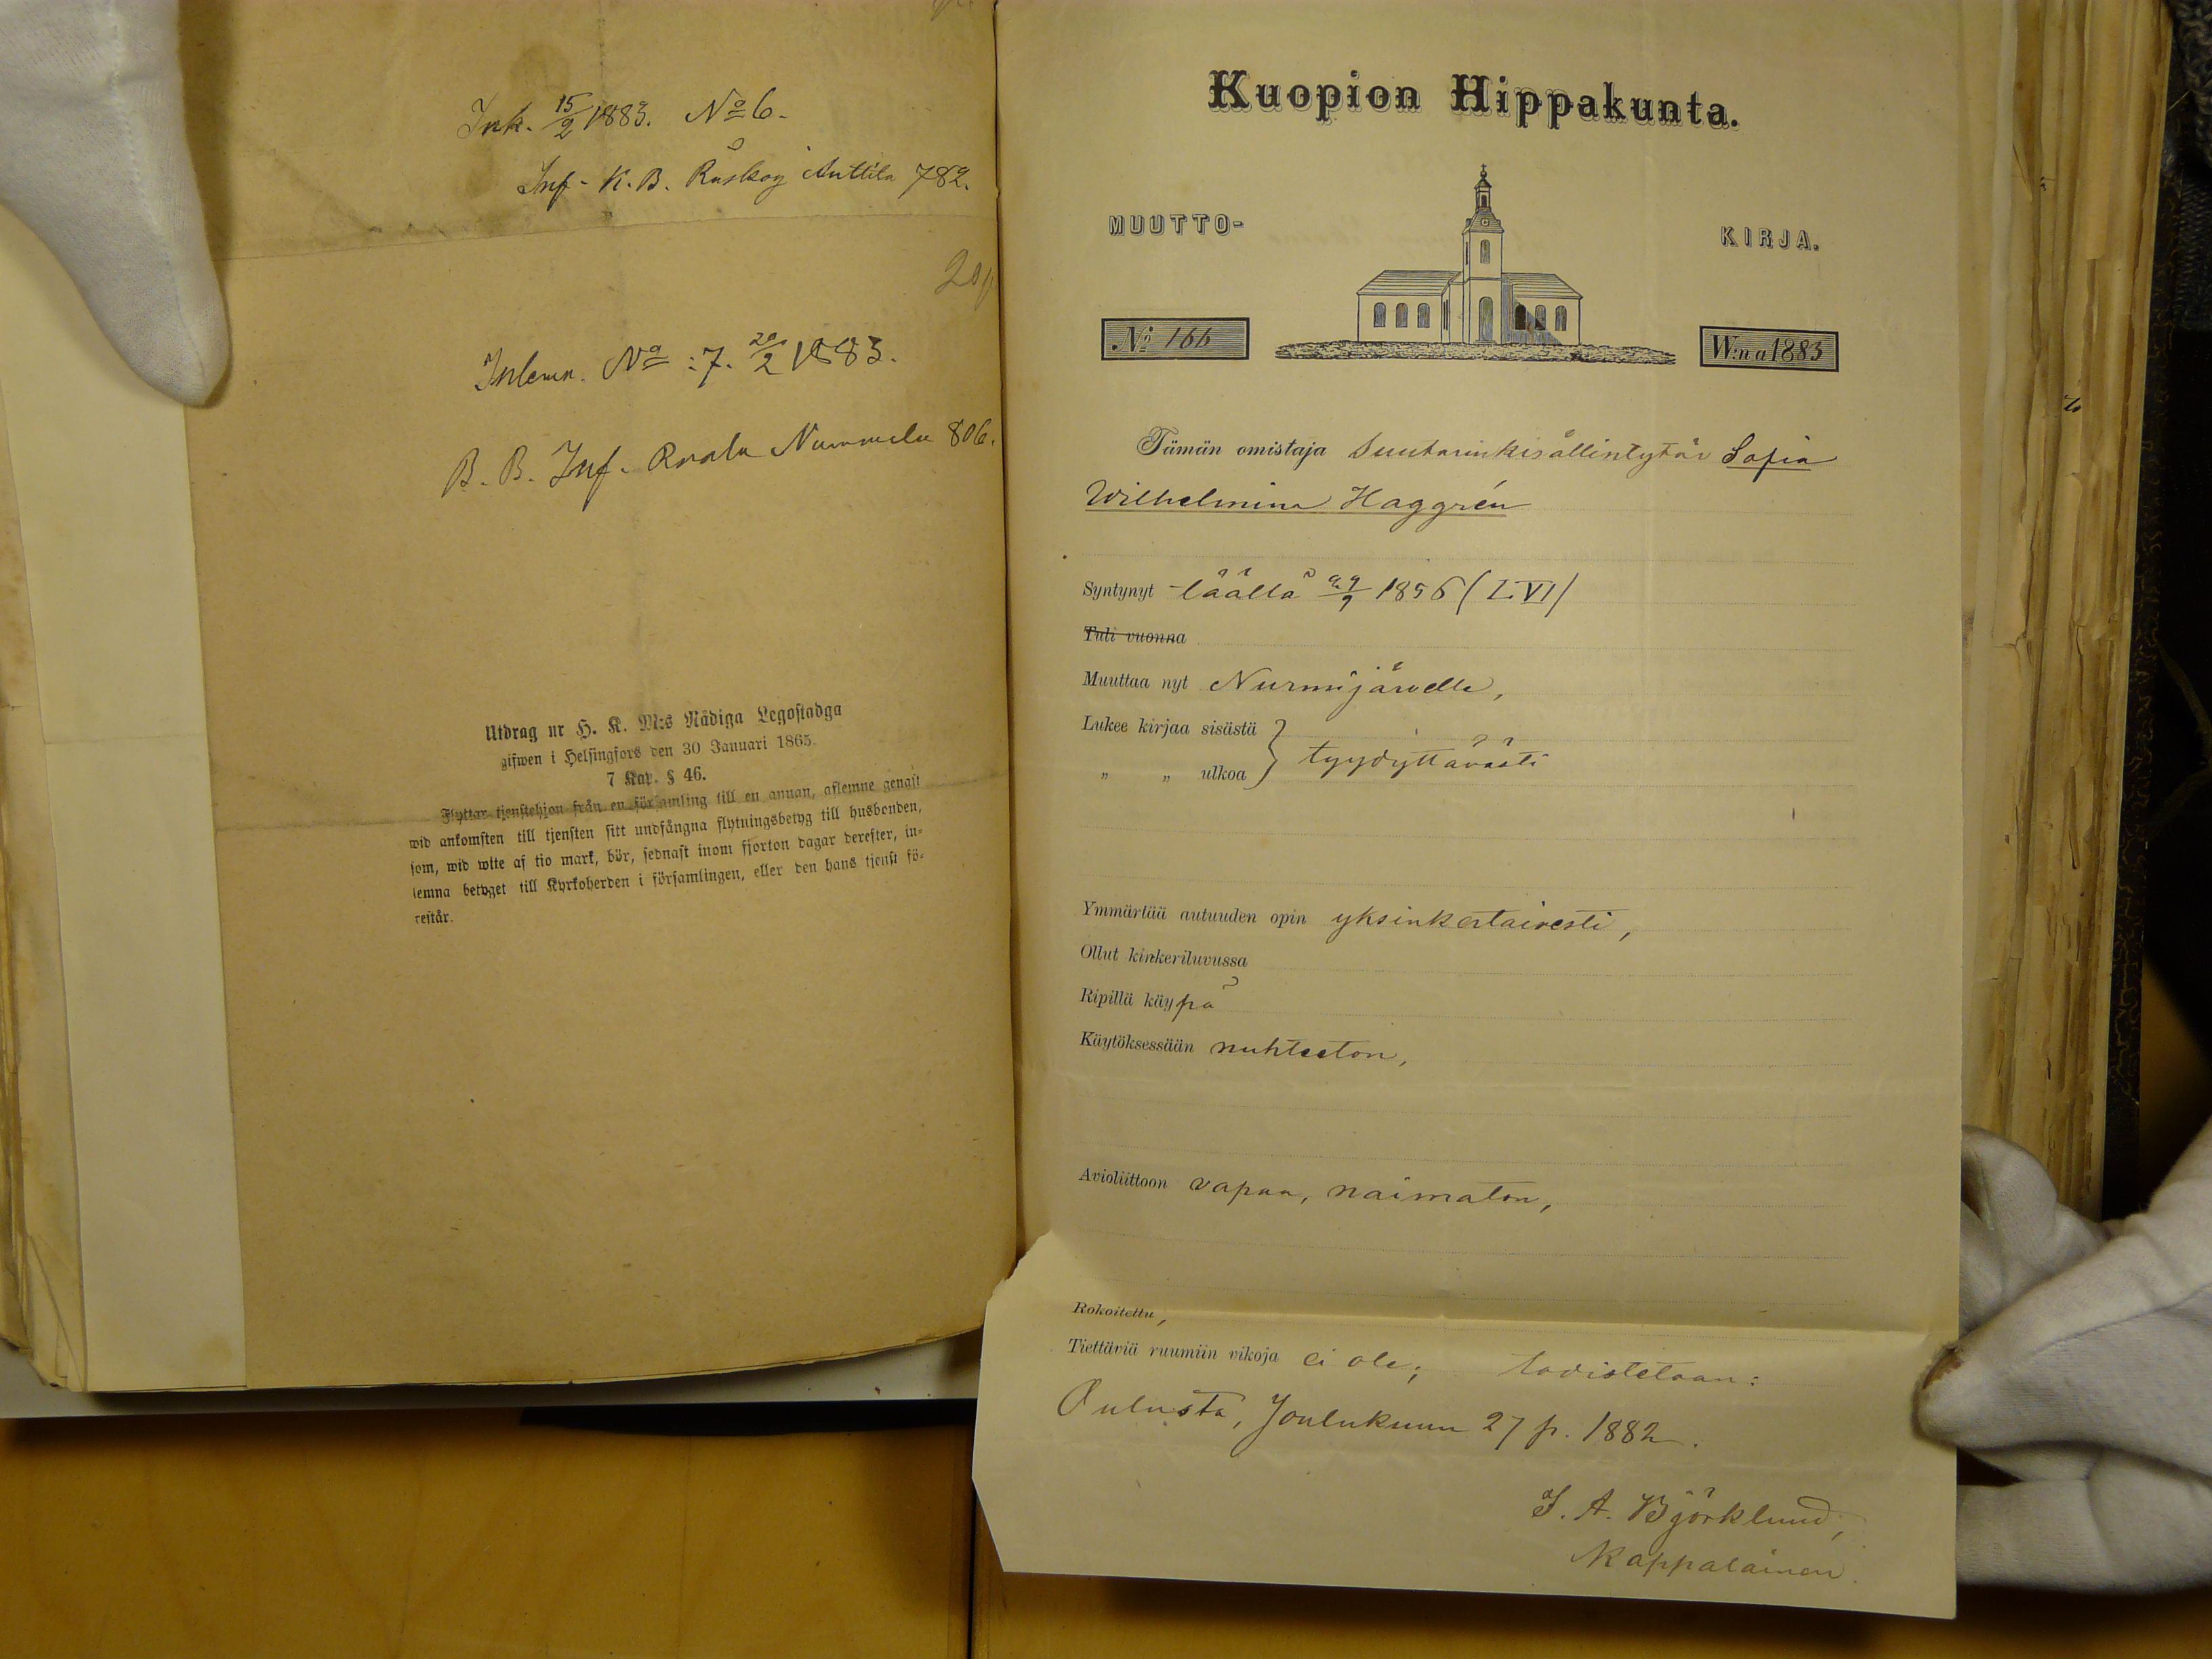 Ink. 15/2 1883. No 6.
Inf. K. B. Råskog Anttila 782.
Inlemn. No :7. 20/2 1883.
B. B. Inf. Nummela 806.
Utdrag ur H. K. M:s Nådiga Legostadga
gifwen i Helsingfors den 30 Januari 1865.
7 Kap. § 46.
Flyttar tjenstehjon från en församling till en annan, aflemne genast
wid ankomsten till tjensten sitt undfångna flytningsbetyg till husbonden,
som, wid wite af tio mark, bör, sednast inom fjorton dagar derefter, in-
lemna betyget till Kyrkoherden i församlingen, eller den hans tjenst fö-
restår.
Kuopion Hippakunta.
MUUTTO- KIRJA.
No 166 W:na 1883
Tämän omistaja Suutarinkisällintytär Sofia
Wilhelmina Haggrén
Syntynyt täällä 29/9 1856 (LVI)
Tuli vuonna
Muuttaa nyt Nurmijärvelle,
Lukee kirjaa sisästä
„ „ ulkoa } tyydyttävästi
Ymmärtää autuuden opin yksinkertaisesti,
Ollut kinkeriluvussa
Ripillä käypä
Käytöksessään nuhteeton,
Avioliittoon vapaa, naimaton,
Rokoitettu,
Tiettäviä ruumiin vikoja ei ole; todistetaan:
Oulusta, Joulukuun 27 p. 1882.
J. A. Björklund,
Kappalainen.